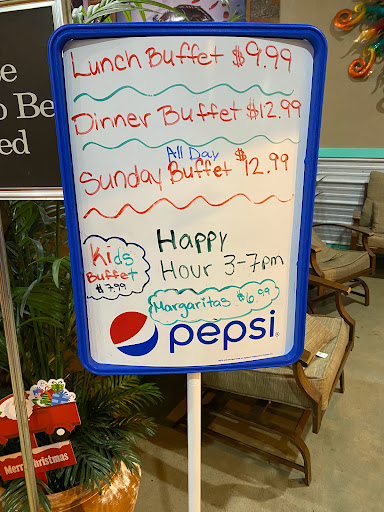 e
o Be
ed
Lunch Buffet $9.99
Dinner Buffet $12.99
All Day
Sunday Buffet $12.99
Kids
Buffet
$7.99
Happy
Hour 3-7pm
Margaritas $6.99
pepsi
Merry Christmas